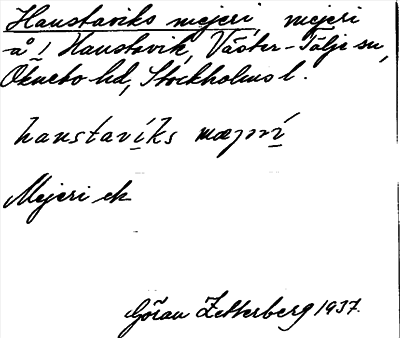 Hanstaviks mejeri, mejeri
å 1 Hanstavik, Väster-Tälje sn,
Öknebo hd, Stockholms l.
hanstavi̱ks mæjəri̱
Mejeri ek
Göran Zetterberg 1937.